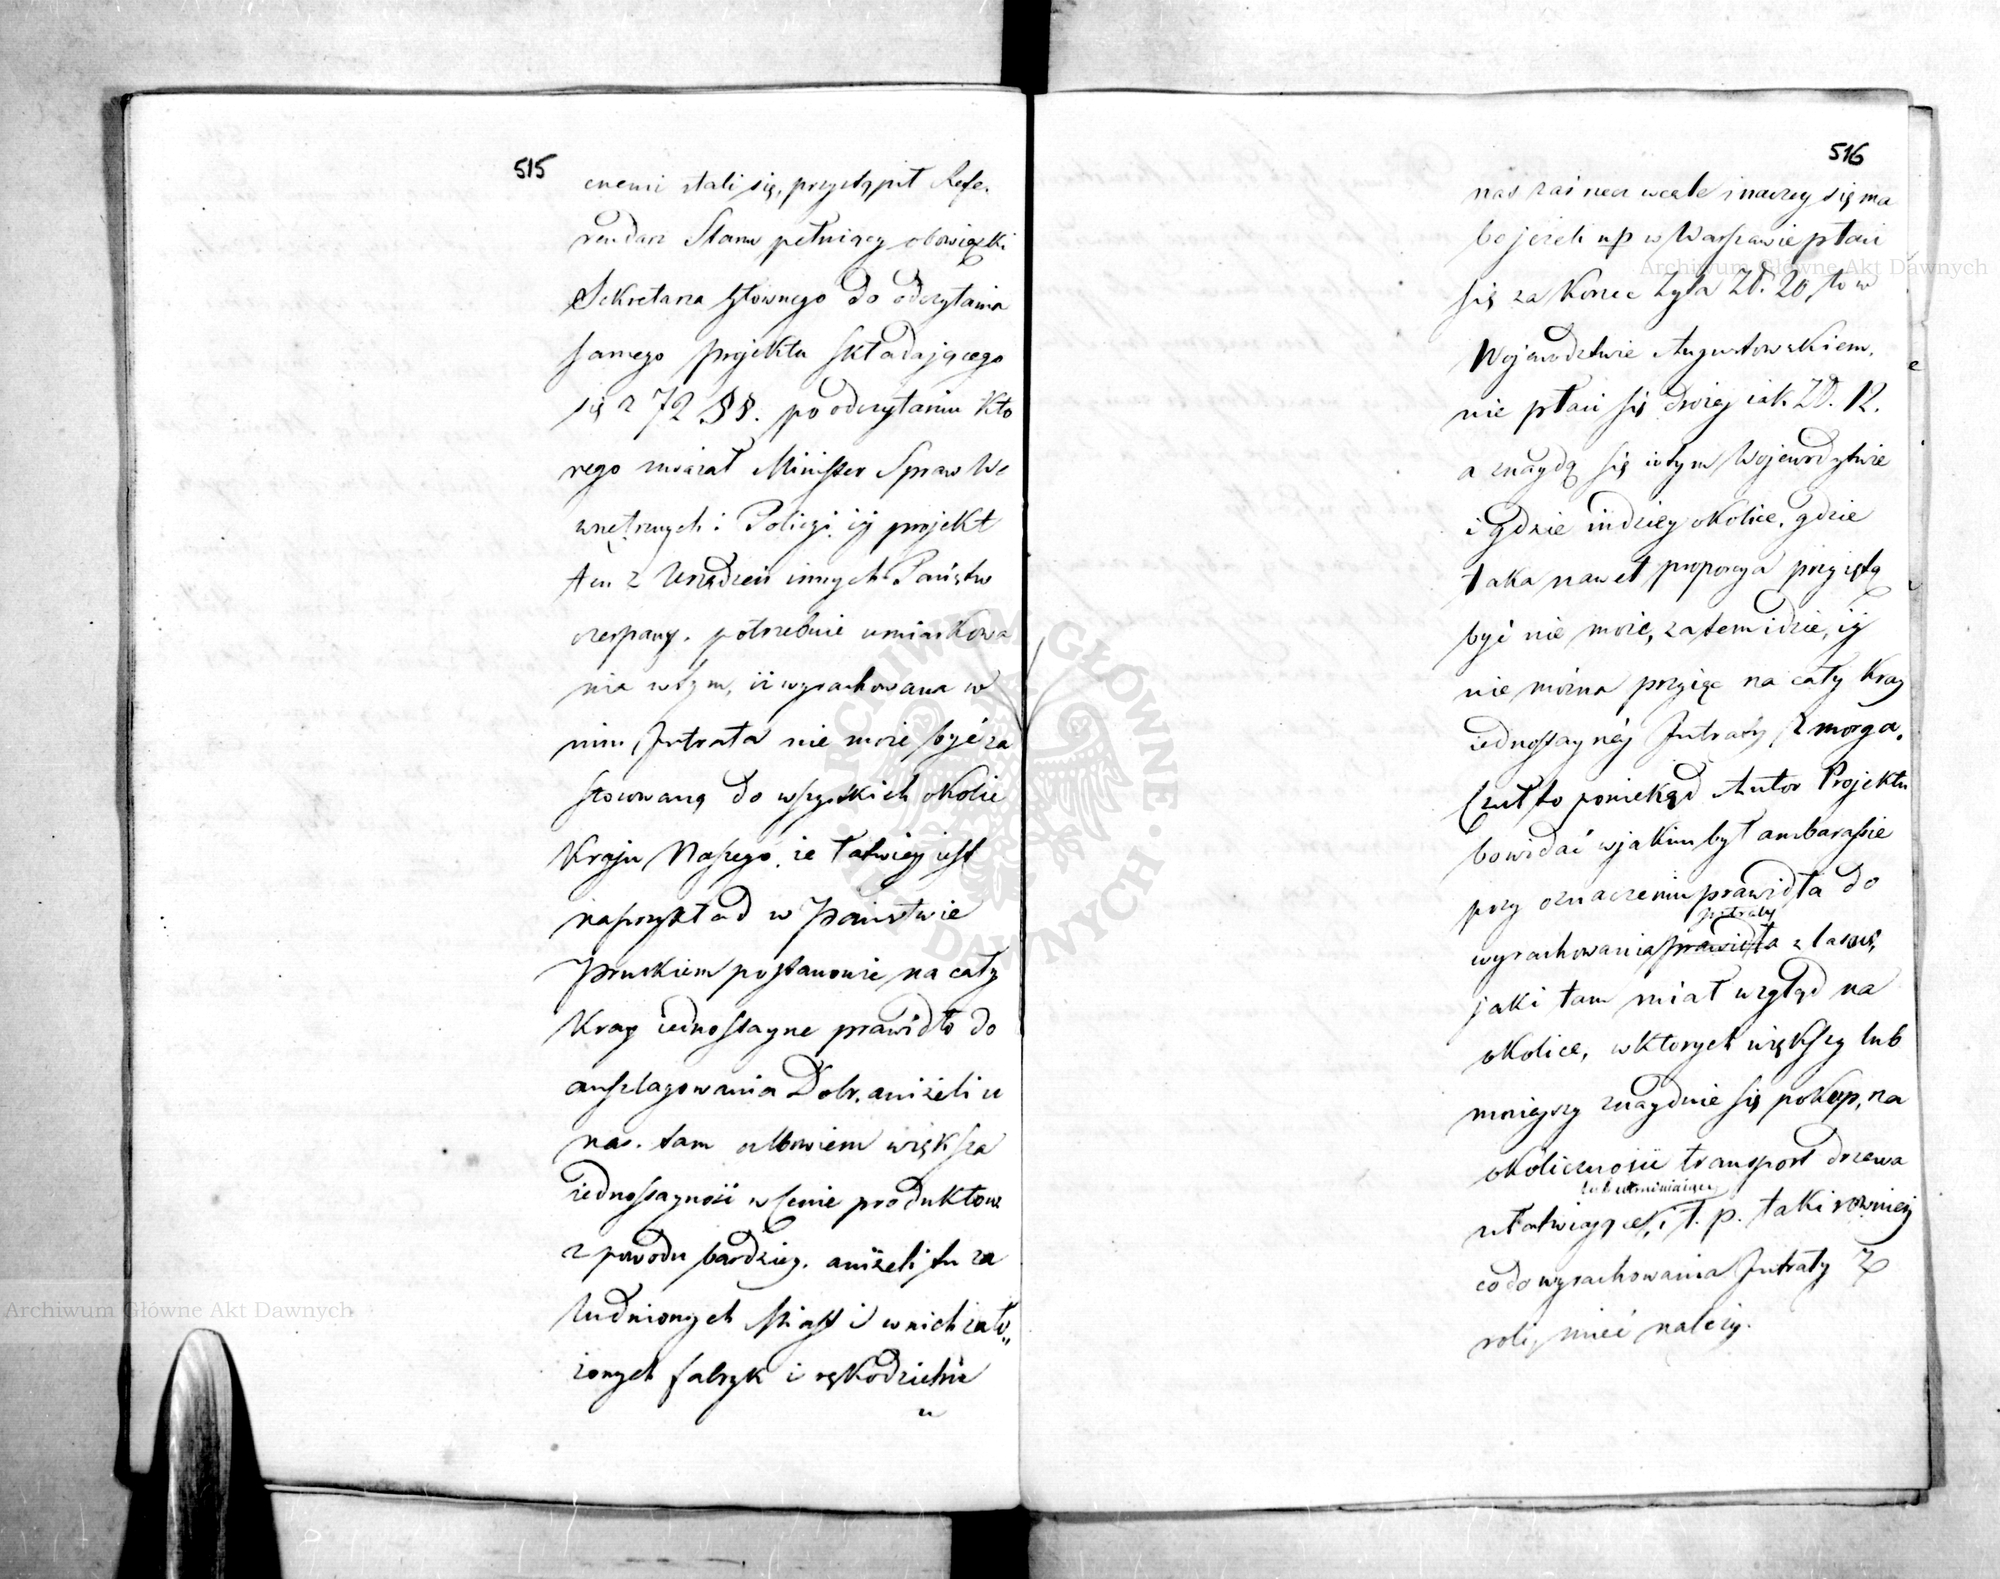 515
cnemi stali się, przystąpił Refe,
rendarz Stanu pełniący obowiązki
Sekretarza Głównego do odczytania
samego projektu składającego
się z 72 §§. po odczytaniu kto
rego uważał Minister Spraw We
wnętrznych i Policyi iż projekt
ten z Urządzeń innych Państw
czerpany. potrzebuie umiarkowa
nia w tym, iż wyrachowana w
nim Jntrata nie może być za
stowaną do wszystkich okolic
Kraju Naszego, że łatwiey iest
naprzykład w Państwie
Pruskiem postanowie na cały
Kray iednostayne prawidło do
anszlagowania Dobr. aniżeli u
nas. tam albowiem większa
iednostayność w Cenie produktow
z powodu bardziey. aniżeli tu za
ludnionych Miast i w nich zało„
żonych fabryk i rękodzielni
u
516
nas zaś rzecz wcale inaczey się ma
bo jeżeli np w Warszawie płaci
się za Korzec żyta Zł. 20, to w
Wojewodztwie Augustowskiem,
nie płaci się drożey iak Zł. 12.
a znaydą się w tym Wojewodztwie
i gdzie indziey okolice, gdzie
taka nawet proporcya przyiętą
być nie może, zatem idzie, iż
nie można przyiąc na cały Kray
iednostayney Jntraty z morga.
Czuł to poniekąd Autor Projektu
bo widać w jakim był ambarasie
przy oznaczeniu prawidła do
Jntraty
wyrachowania prawidła z lasow,
jaki tam miał wzgląd na
okolice, w ktorych większy lub
mnieyszy znayduie się pokup, na
okoliczności transport drzewa
lub utrudniaiące
ułatwiaiące, i t. p. taki rowniez
co do wyrachowania Jntraty z
roli, mieć należy.
Archiwum Główne Akt Dawnych
Archiwum Główne Akt Dawnych
ARCHIWUM GŁÓWNE AKT DAWNYCH